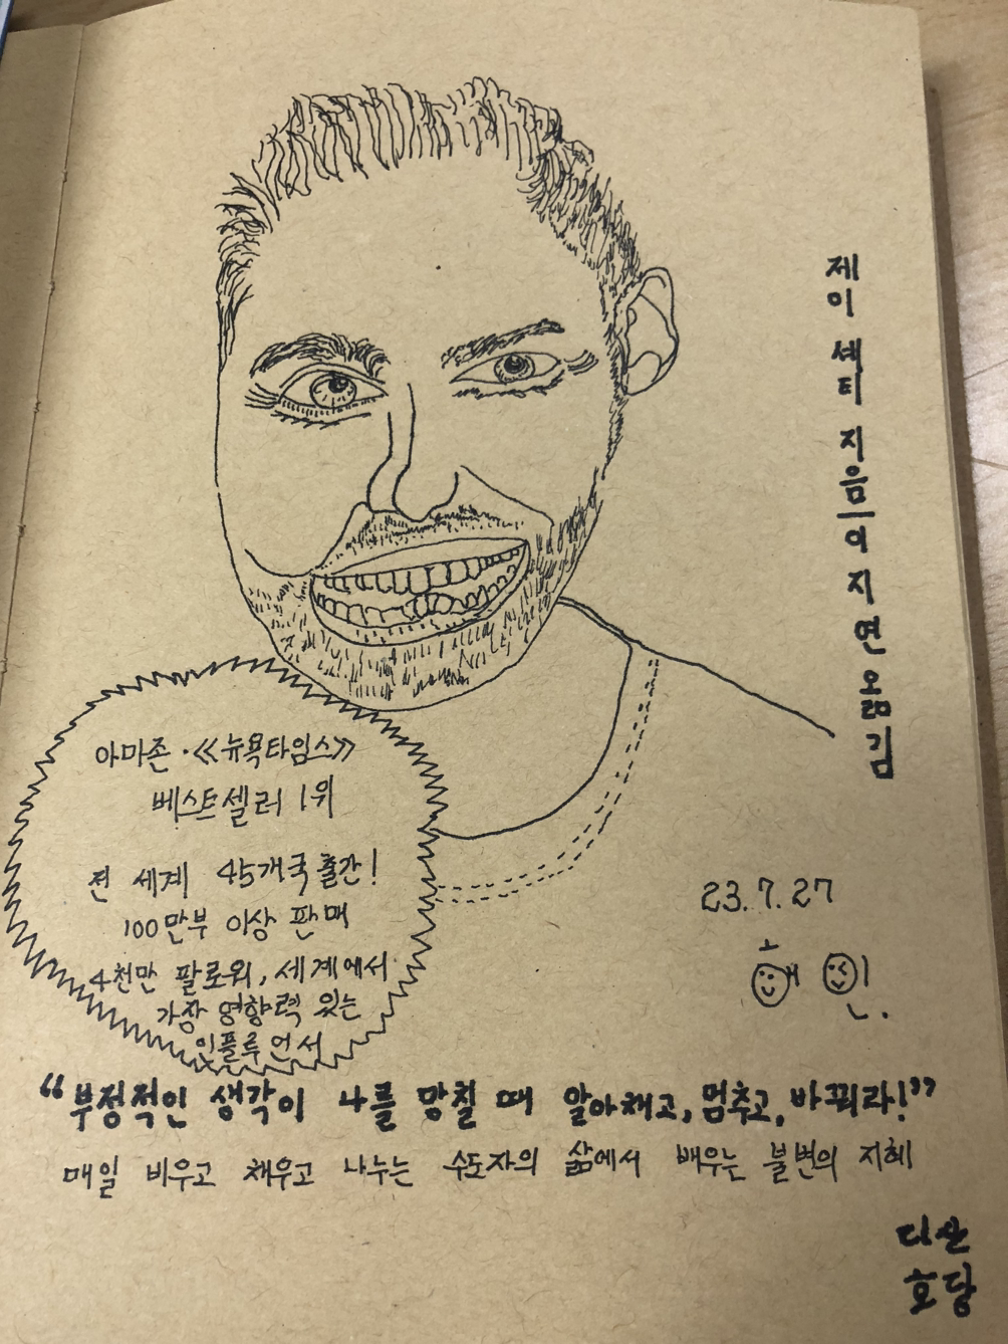 제이 셰티 지음 | 이지연 옮김
아마존·《뉴욕타임스》
베스트셀러 1위
전 세계 45개국 출간!
100만부 이상 판매
4천만 팔로워, 세계에서
가장 영향력 있는
인플루언서
23.7.27
혜인.
“부정적인 생각이 나를 망칠 때 알아채고, 멈추고, 바꿔라!”
매일 비우고 채우고 나누는 수도자의 삶에서 배우는 불변의 지혜
다산
호당